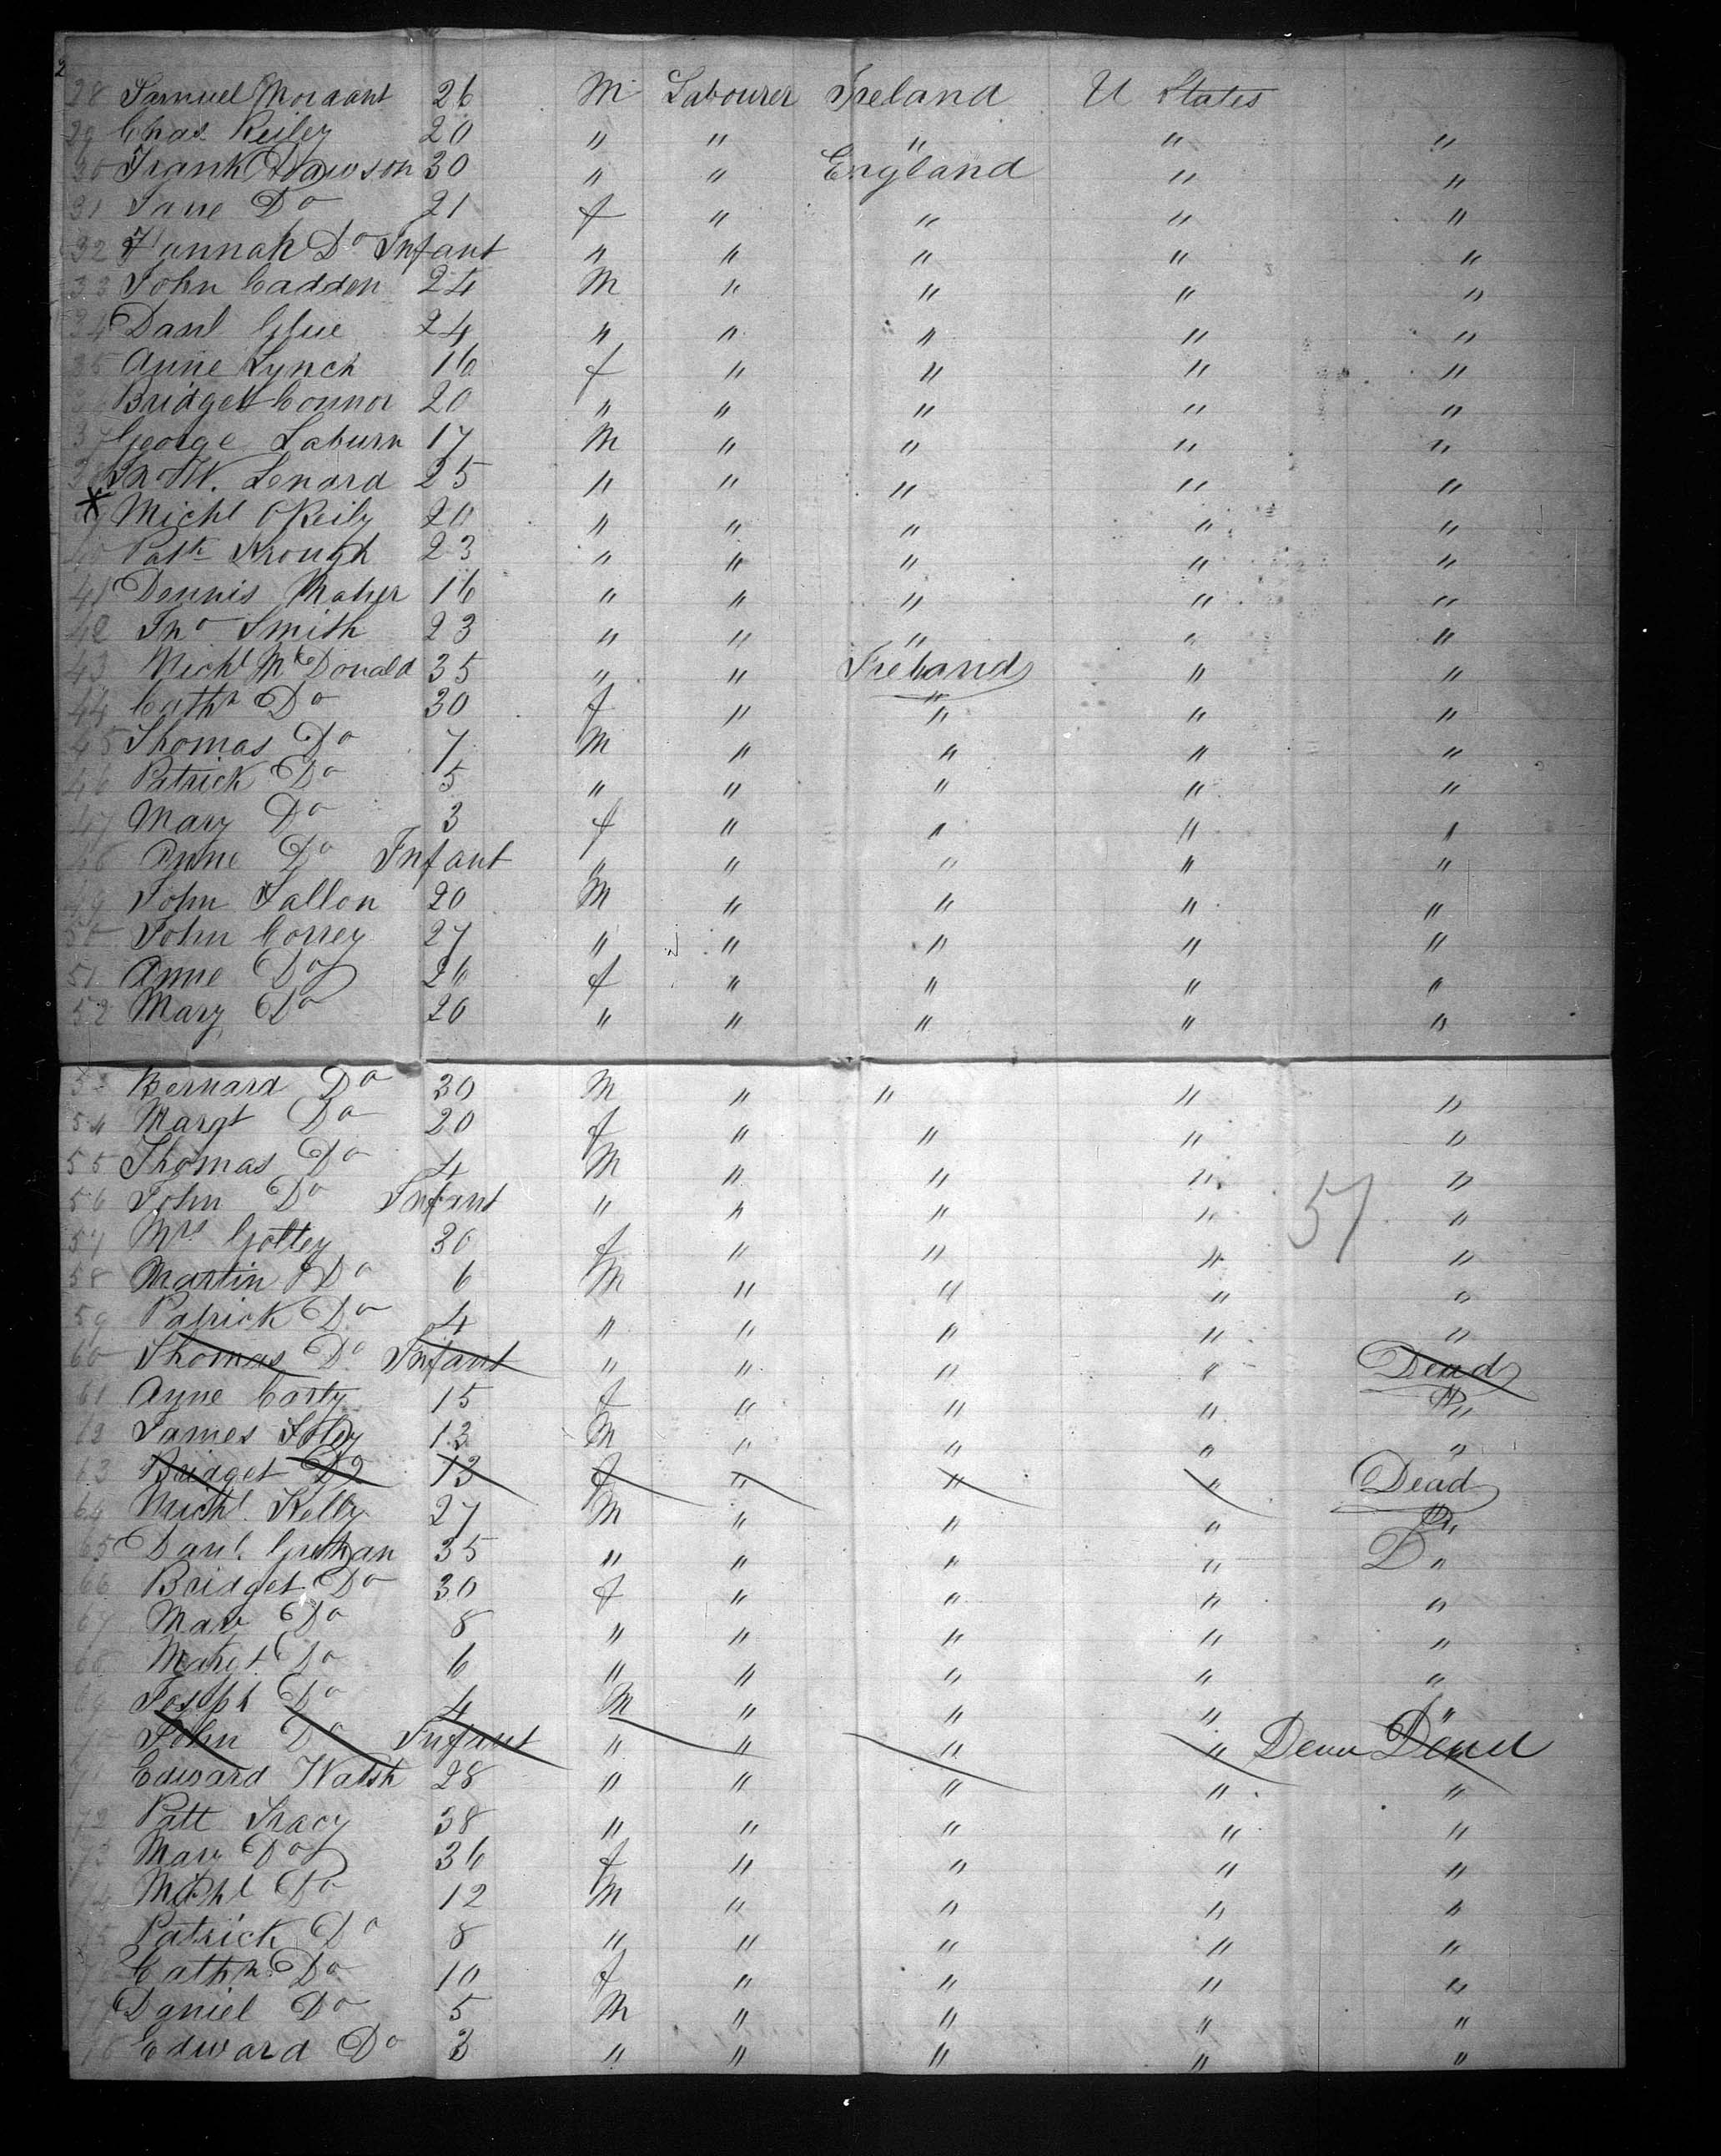 2
28 Samuel Mordant 26 M Labourer Ireland U States
29 Chas Reiley 20 " " " " "
30 Frank Dawson 30 " " England " "
31 Jane Do 21 f " " " "
32 Hannah Do Infant " " " " "
33 John Cadden 24 M " " " "
34 Danl Glue 24 " " " " "
35 Anne Lynch 16 f " " " "
36 Bridget Connor 20 " " " " "
37 George Laburn 17 M " " " "
38 Lenard 25 " " " " "
X 39 Michl OReily 20 " " " " "
40 Patk Krough 23 " " " " "
41 Dennis Maher 16 " " " " "
42 Jno Smith 23 " " " " "
43 Michl McDonald 35 " " Ireland " "
44 Cathn Do 30 f " " " "
45 Thomas Do 7 M " " " "
46 Patrick Do 5 " " " " "
47 Mary Do 3 f " " " "
48 Anne Do Infant " " " " "
49 John Fallon 20 M " " " "
50 John Correy 27 " " " " "
51 Anne Do 26 f " " " "
52 Mary Do 20 " " " " "
53 Bernard Do 30 M " " " "
54 Margt Do 20 f " " " "
55 Thomas Do 4 M " " " "
56 John Do Infant " " " " "
51
57 Mrs Goltey 30 f " " " "
58 Martin Do 6 M " " " "
59 Patrick Do 4 " " " " "
60 Thomas Do Infant " " " " Dead
61 Anne Carty 15 f " " " "
62 James Foley 13 M " " " "
63 Bridget Do 13 f " " " Dead
64 Michl Kelly 27 M " " " "
65 Danl. Grethan 35 " " " " D "
66 Bridget Do 30 f " " " "
67 Mary Do 8 " " " " "
68 Margt. Do 6 " " " " "
69 Joseph Do 4 M " " " "
70 John Do Infant " " " " Dead Dead
71 Edward Walsh 28 " " " " "
72 Patt Tracy 38 " " " " "
73 Mary Do 36 f " " " "
74 Michl Do 12 M " " " "
75 Patrick Do 8 " " " " "
76 Cathn Do 10 f " " " "
77 Daniel Do 5 M " " " "
78 Edward Do 3 " " " " "